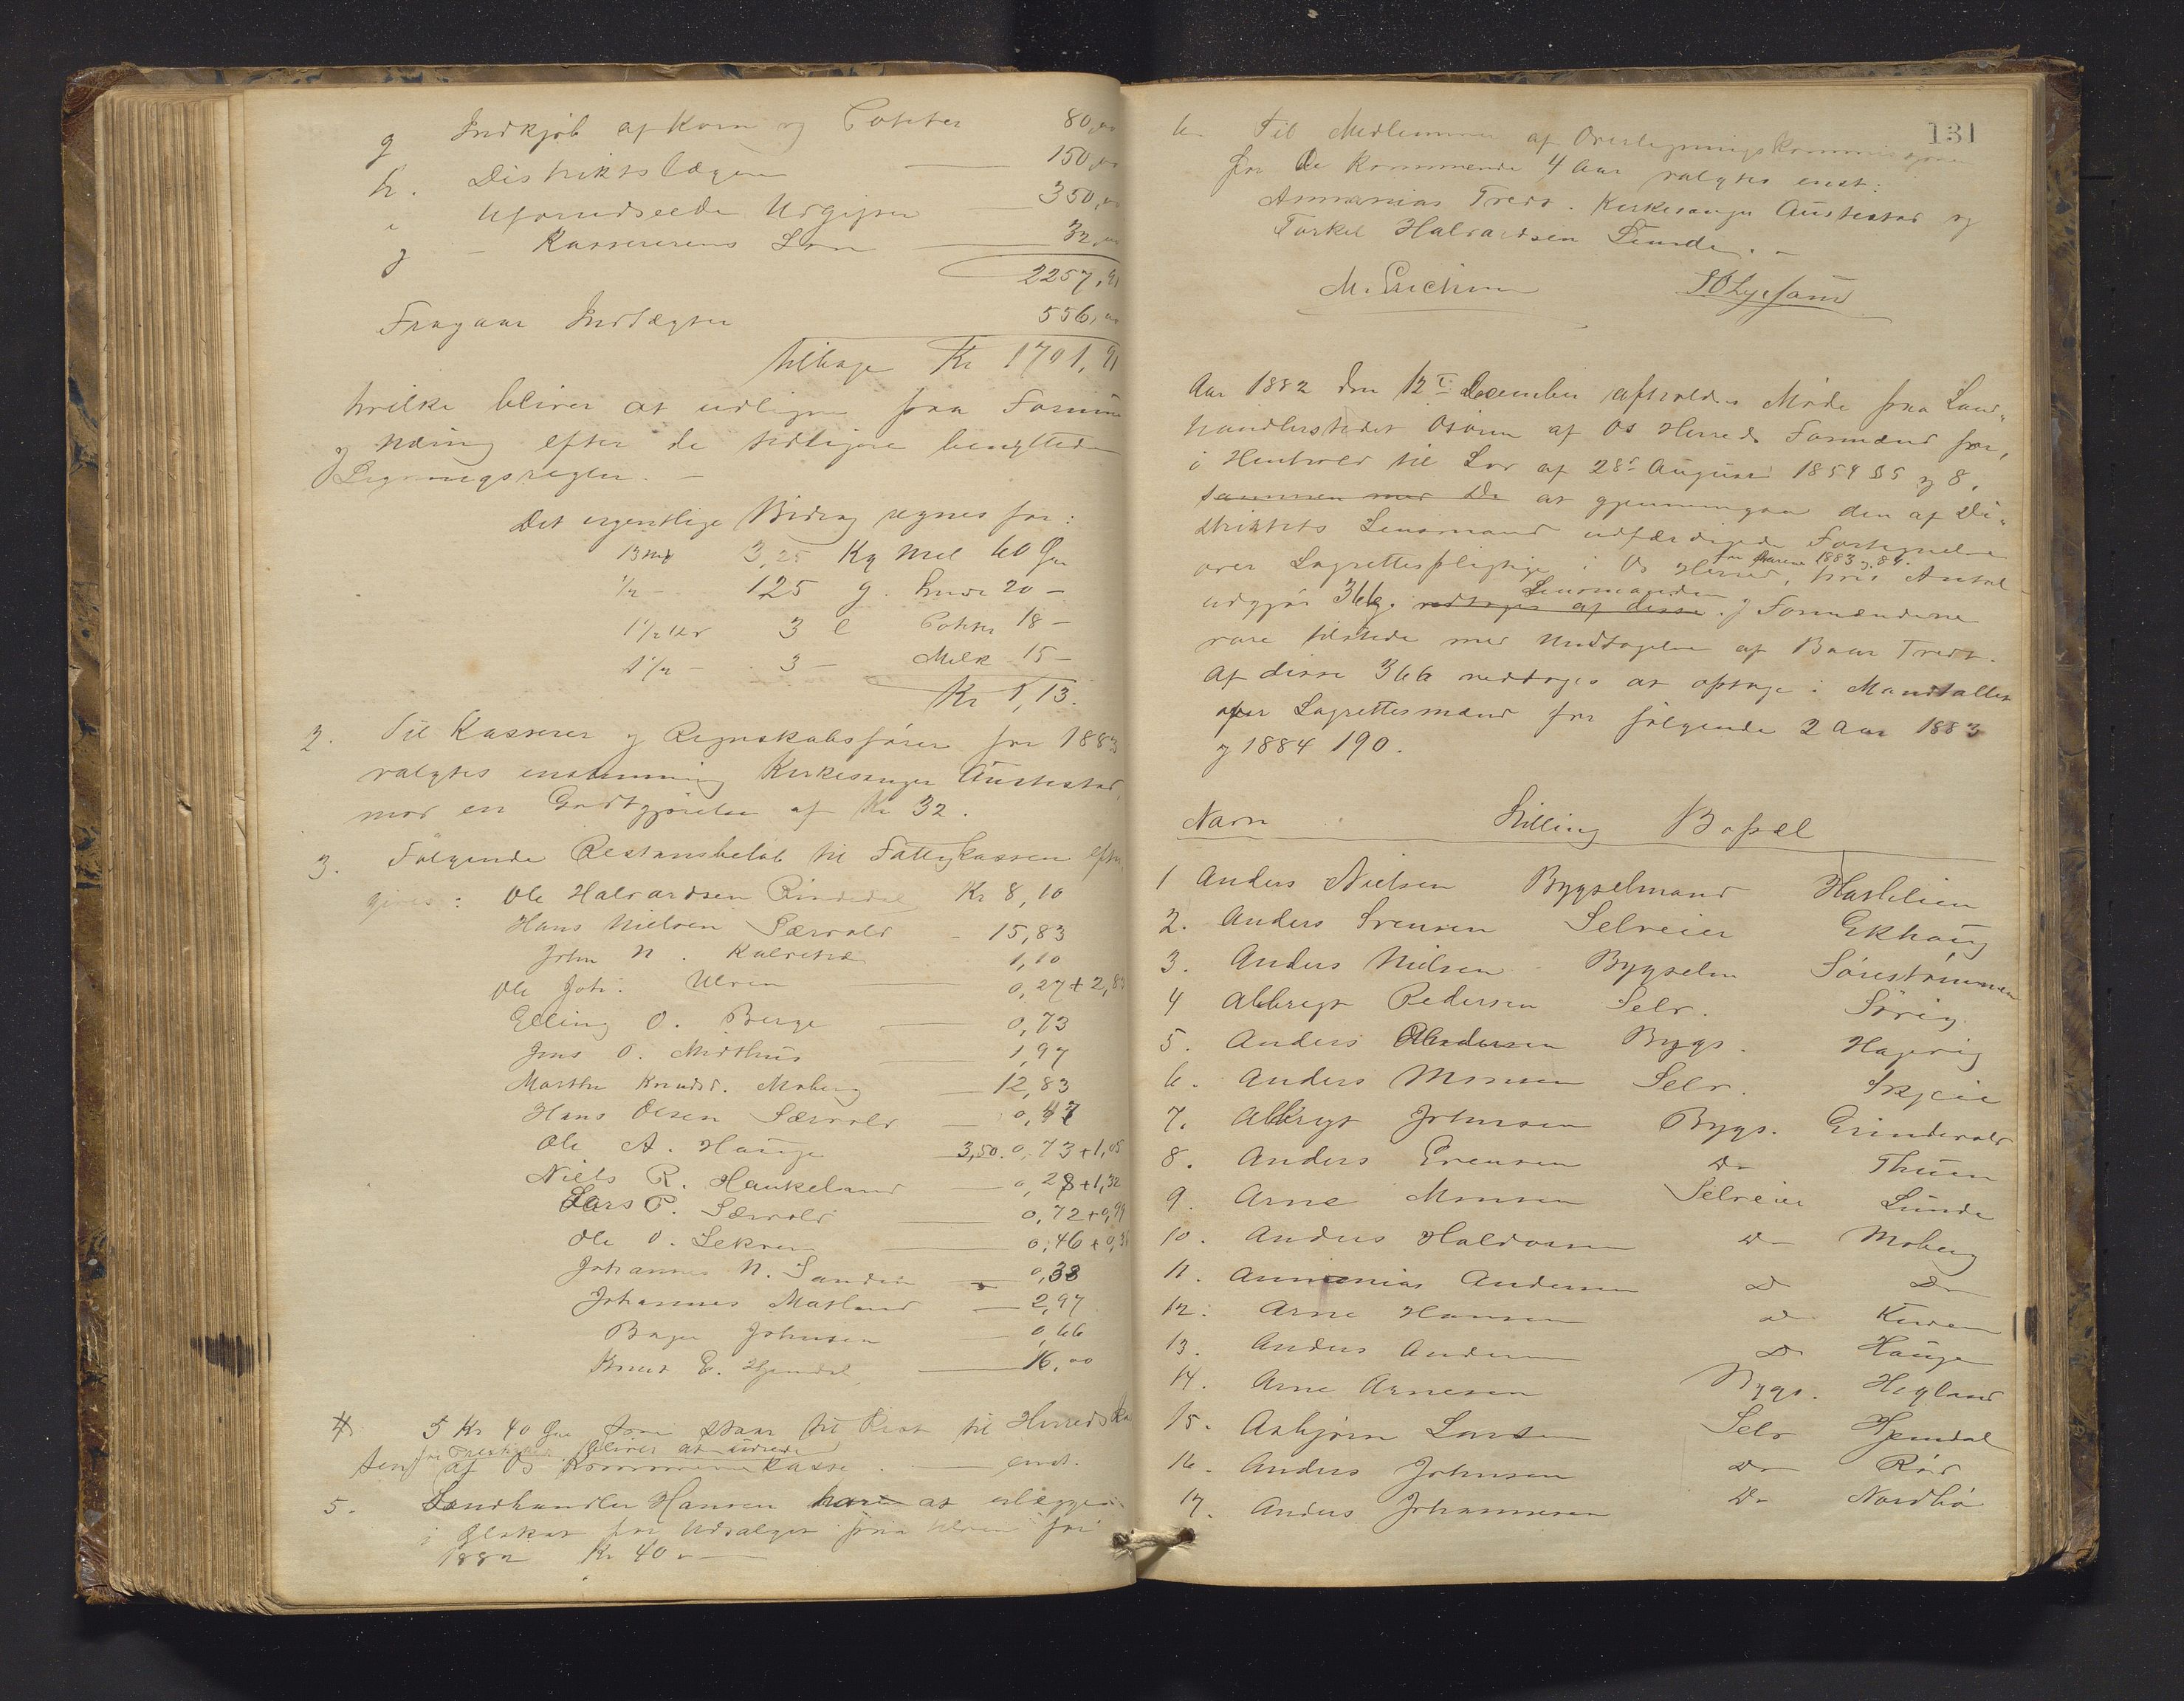 g Indkjøb af Korn og Poteter 80,00
h. Distriktslægen 150,00
i Uforudseede Udgifter 350,00
j - Kassererens Løn 32,00
2257,91
Fragaar Indtægter 556,00
tilbage Kr 1701,91
hvilke bliver at udligne paa Formue
og Næring efter de tidligere benyttede
Ligningsregler. -
Det ugentlige Bidrag regnes for:
13 3,25 Kg Mel 60 Øre
½ - 125 g. Smør 20 -
1½ 3 l Poteter 18 -
1½ - 3 - Melk 15 -
Kr 1,13.
2. Til Kasserer og Regnskabsfører for 1883
valgtes enstemmig Kirkesanger Austestad,
mod en Godtgjørelse af Kr 32.
3. Følgende Restansbeløb til Fattigkassen efter,
gives: Ole Halvardsen Rindedal Kr 8,10
Hans Nielsen Særvold - 15,83
John N. Kalvetræ 1,10
Ole Joh. Ulven 0,27+2,83
Elling O. Berge 0,73
Jens O. Midthus 1,97
Marthe Knudsd. Moberg 12,83
Hans Olsen Særvold 0,47
Ole A. Hauge 3,50. 0,73+1,05
Niels R. Haukeland 0,28+1,32
Lars P. Særvold 0,72+0,99
Ole O. Lekven 0,46+0,31
Johannes N. Sandven 0,38
Johannes Matland 2,97
Johnsen 0,66
Knud E. Hjændal 16,00
4 5 Kr 40 Øre som staar til Rest til Herredska
sen for bliver at udrede
af Os Kommunekasse. enst.
5. Landhandler Hansen har at erlægge
i Ølskat for Udsalget paa Ulven for
1882 Kr 40 -
131
6. Til Medlemmer af Overligningskommissionen
for de kommende 4 Aar valgtes enst:
Ammonias Tveit. Kirkesanger Austestad og
Torkel Halvardsen Lunde. -
M. Erichsen
Aar 1882 den 12te December afholdes Møde paa Land-
handlerstedet Osøren af Os Herreds Formænd for,
i Henhold til Lov af 28de August 1854 §5 og 8,
sammen med De at gjennemgaa den af Di-
striktets Lensmand udfærdigede Fortegnelse
for Aarene 1883 og 84.
over Lagrettespligtige i Os Herred, hvis Antal
Lensmanden
udgjør 366. vedtoges af disse og Formændene
vare tilstede med Undtagelse af Baar Tveit.
Af disse 366 vedtoges at optage i Mandtallet
over Lagrettesmænd for følgende 2 Aar 1883
og 1884 190.
Navn Stilling Bopæl
1 Anders Nielsen Bygselmand Haslelien
2. Anders Svensen Selveier Ekhaug
3. Anders Nielsen Bygselm Sørestrømmen
4 Albregt Pedersen Selv. Sørvig
5. Anders Andersen Bygs. Hagevig
6. Anders Monsen Selv. Skjeie
7. Albregt Johnsen Bygs. Grindevold
8. Anders Svensen Do Thuen
9. Arne Monsen Selveier Lunde
10. Anders Haldorsen Do Moberg
11. Ammonias Andersen Do Do
12. Arne Hansen Do Kuven
13. Anders Andersen Do Hauge
14. Arne Arnesen Bygs. Hegland
15. Asbjørn Larsen Selv Hjændal
16. Anders Johnsen Do Rød
17. Anders Johannesen Do Nordbø